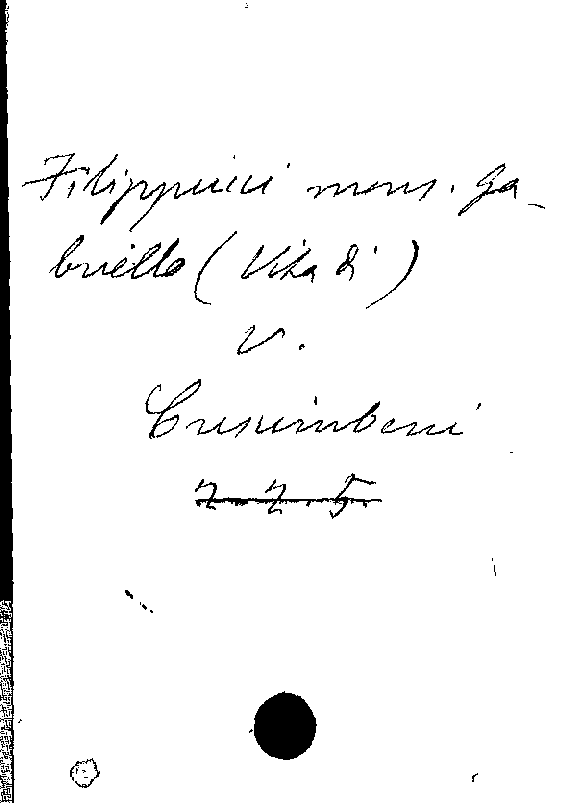 Filippucci mons. Ga-
briello (Vita di)
v.
Crescimbeni
7.7.5.